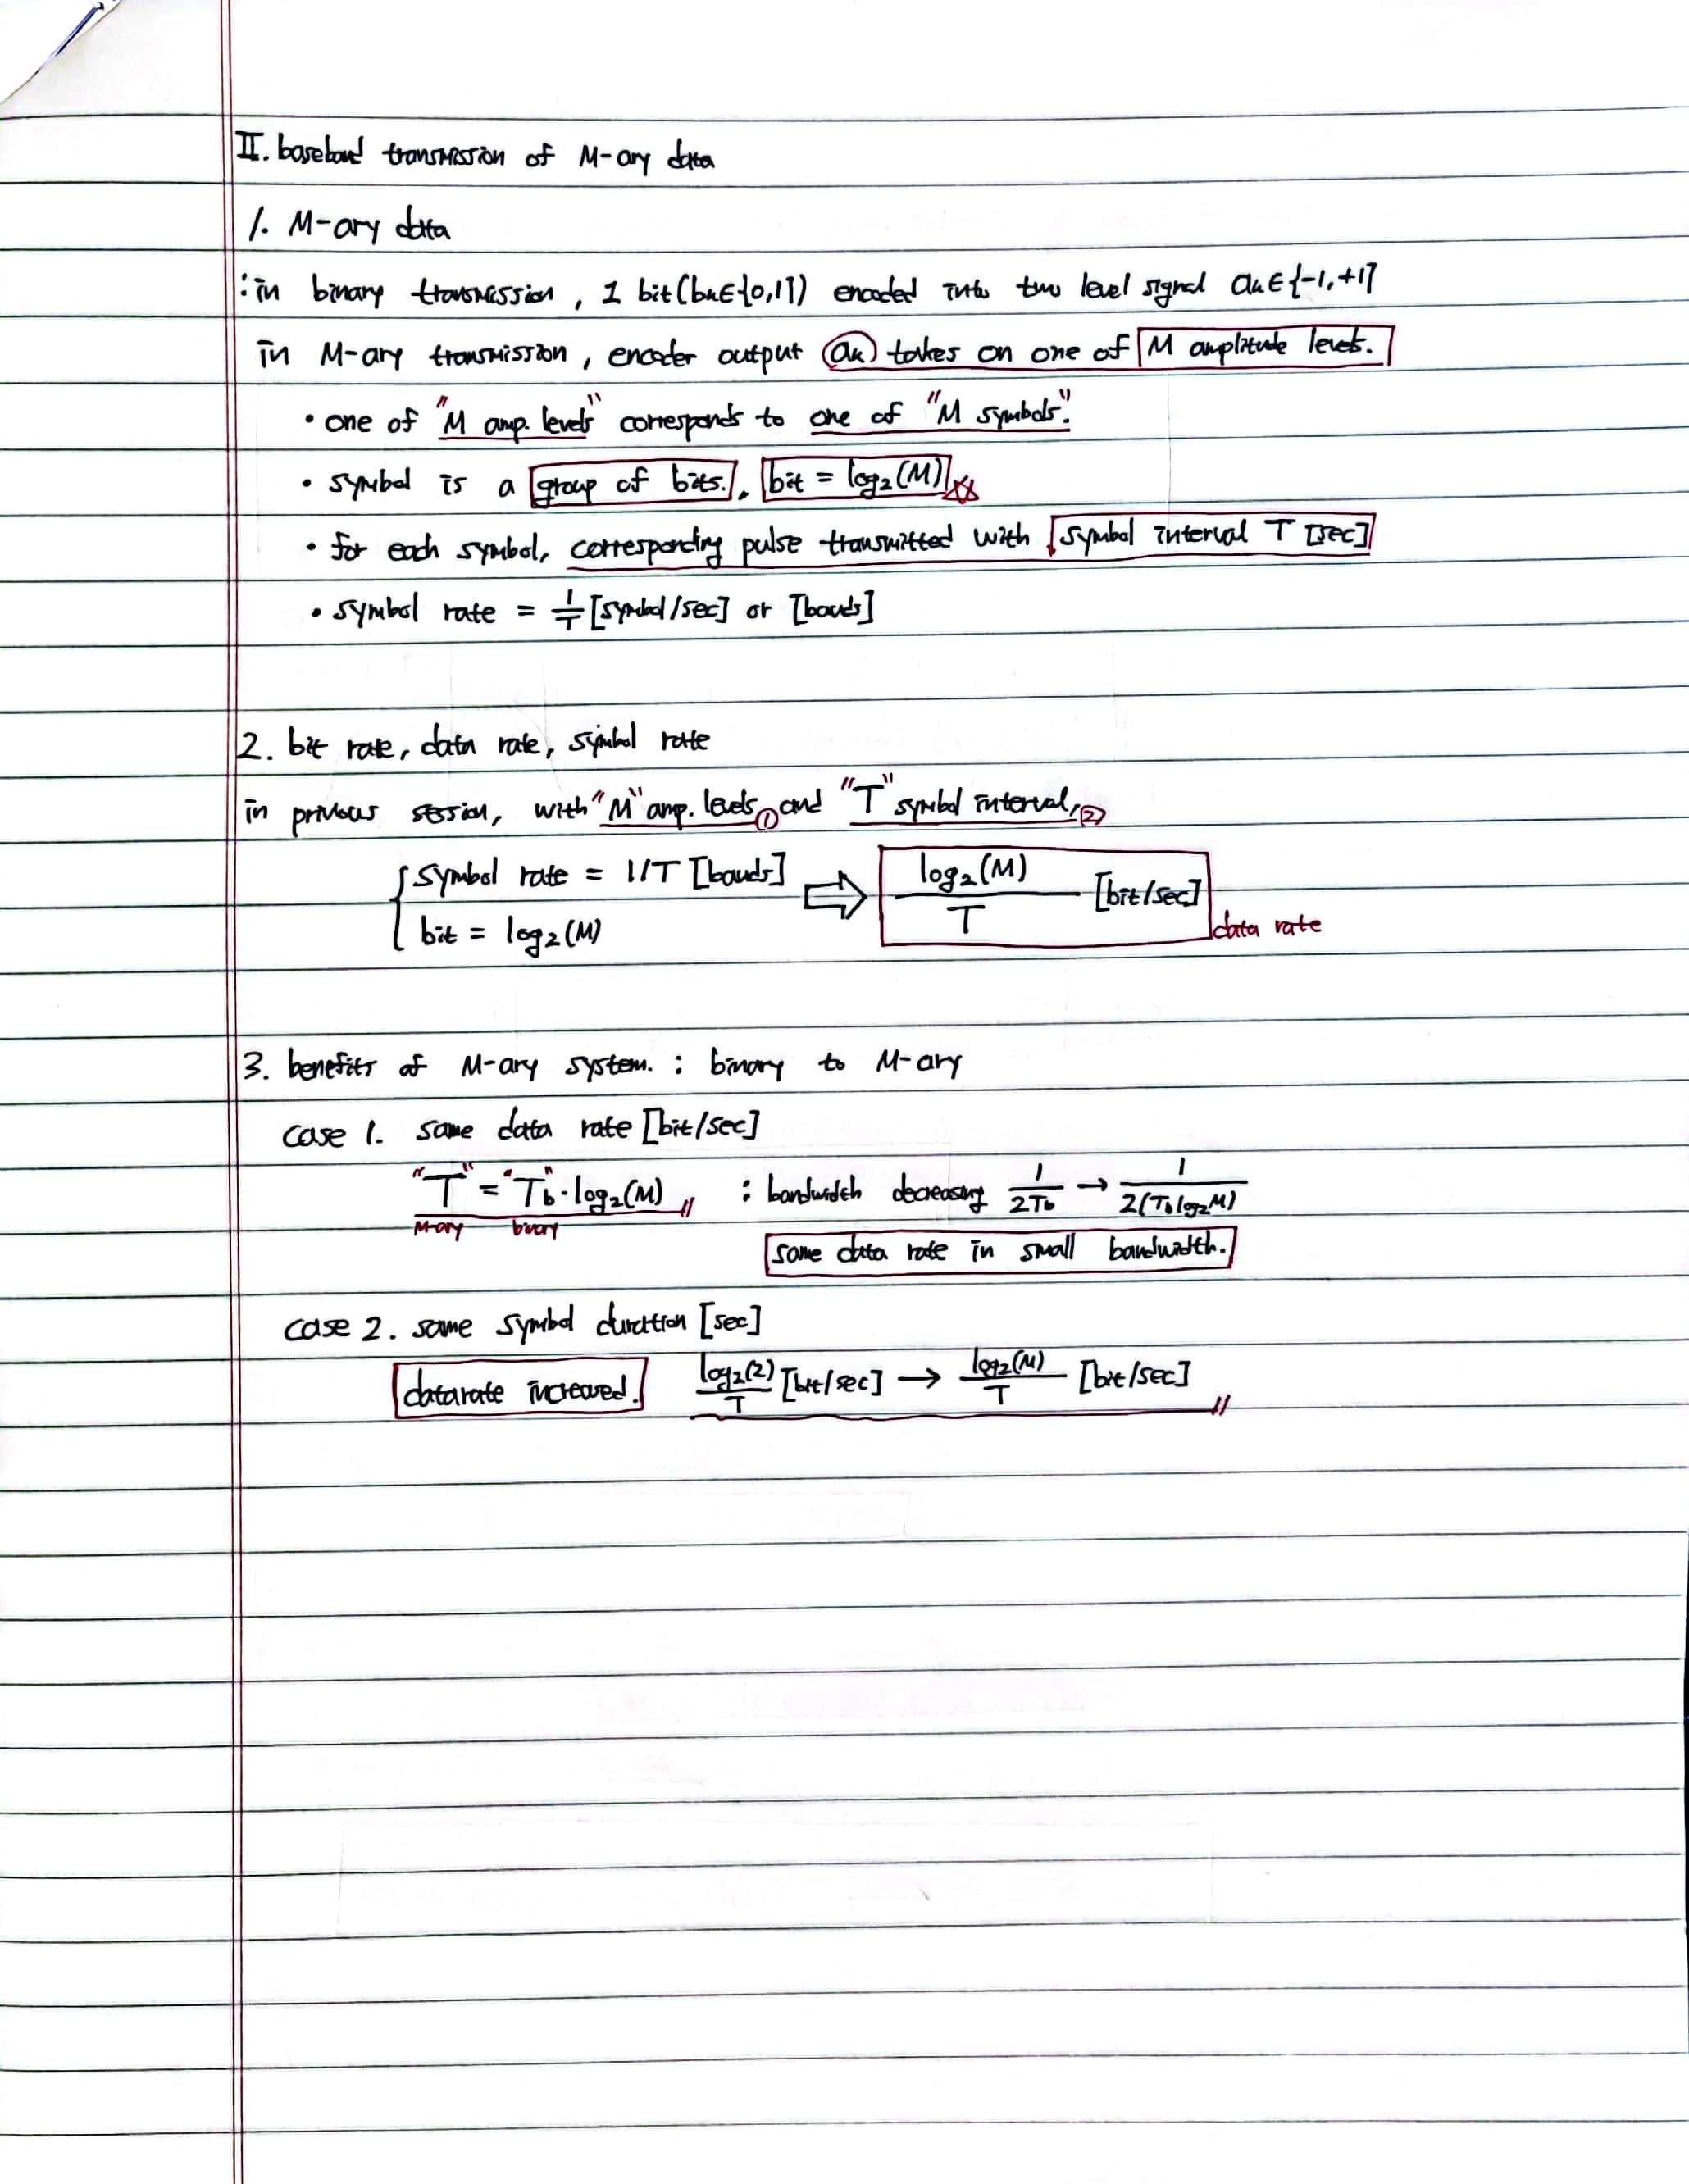 II. baseband transmission of M-ary data
1. M-ary data
: in binary transmission, 1 bit (bk∈{0,1}) encoded into two level signal ak∈{-1,+1}
in M-ary transmission, encoder output ak takes on one of M amplitude levels.
• one of "M amp. levels" corresponds to one of "M symbols".
• symbol is a group of bits. , bit = log₂(M) ☆
• for each symbol, corresponding pulse transmitted with symbol interval T [sec]
• symbol rate = 1/T [symbol/sec] or [bauds]
2. bit rate, data rate, symbol rate
in privious session, with "M" amp. levels ① and "T" symbol interval, ②
symbol rate = 1/T [bauds] ⇨ log₂(M)/T [bit/sec] data rate
bit = log₂(M)
3. benefits of M-ary system. : binary to M-ary
case 1. same data rate [bit/sec]
"T" = "Tb" · log₂(M) : bandwidth decreasing 1/2Tb → 1/2(Tb log₂M)
M-ary binary
same data rate in small bandwidth.
case 2. same symbol duration [sec]
data rate increased. log₂(2)/T [bit/sec] → log₂(M)/T [bit/sec]